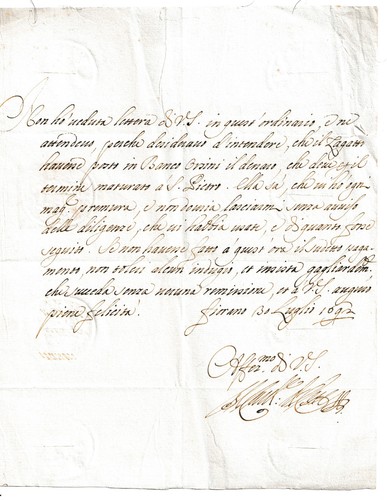 Non hò ueduta lettera di V.S. in quest'ordinario, e ne
attendeuo, perche desiderauo d'intendere, che il Zagatti
hauesse posto in Banco Orsini il denaro, che deue p il
termine maturato à S. Pietro. Ella sà, che ui hò ogni
mag. premura, e non deuia lasciarmi senza auiso
delle diligenze, che ui habbia usate, e di quanto fosse
seguito. Se non hauesse fatto a quest'ora il solito paga-
mento, non toleri alcun indugio, et insista gagliardam.
che succeda senza ueruna remissione, et à V.S. auguro
piena felicità. Fiorano 30 Luglio 1692
Affez.mo di V.S.